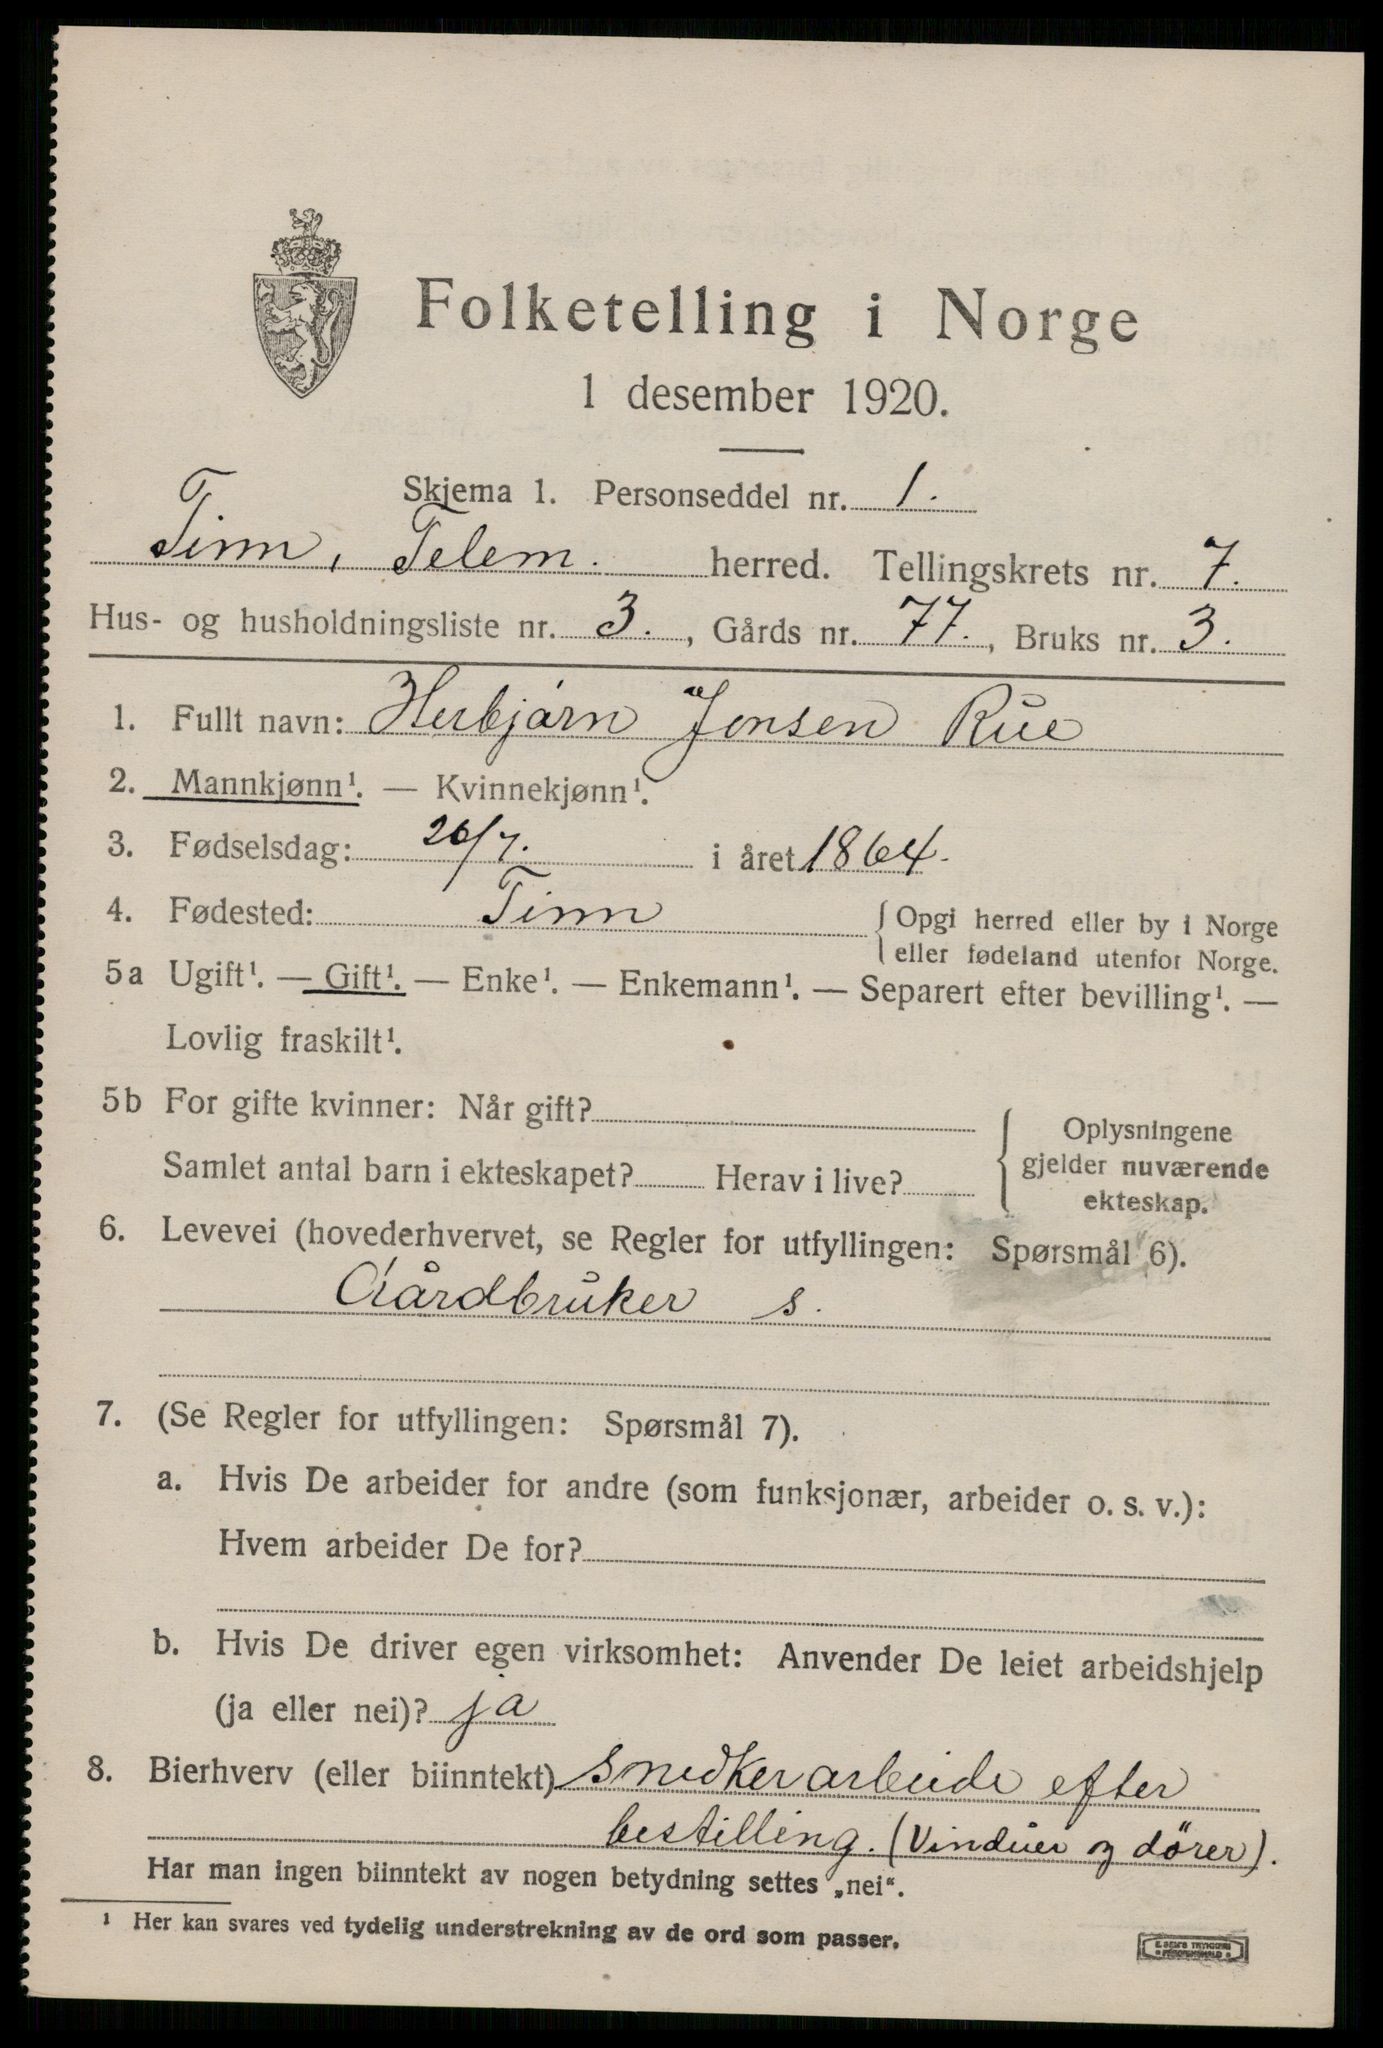 Folketelling i Norge
1 desember 1920.
Skjema 1. Personseddel nr. 1.
Tinn, Telem. herred. Tellingskrets nr. 7.
Hus- og husholdningsliste nr. 3., Gårds nr. 77., Bruks nr. 3.
1. Fullt navn: Herbjørn Jonsen Rue
2. Mannkjønn¹. — Kvinnekjønn¹.
3. Fødselsdag: 26/7. i året 1864.
4. Fødested: Tinn { Opgi herred eller by i Norge
eller fødeland utenfor Norge.
5a Ugift¹. — Gift¹. — Enke¹. — Enkemann¹. — Separert efter bevilling¹. —
Lovlig fraskilt¹.
5b For gifte kvinner: Når gift?
Samlet antal barn i ekteskapet? Herav i live?
{ Oplysningene
gjelder nuværende
ekteskap.
6. Levevei (hovederhvervet, se Regler for utfyllingen: Spørsmål 6).
Gårdbruker s.
7. (Se Regler for utfyllingen: Spørsmål 7).
a. Hvis De arbeider for andre (som funksjonær, arbeider o. s. v.):
Hvem arbeider De for?
b. Hvis De driver egen virksomhet: Anvender De leiet arbeidshjelp
(ja eller nei)? ja
8. Bierhverv (eller biinntekt) snedkerarbeide efter
bestilling. (Vinduer og dörer).
Har man ingen biinntekt av nogen betydning settes „nei“.
¹ Her kan svares ved tydelig understrekning av de ord som passer.